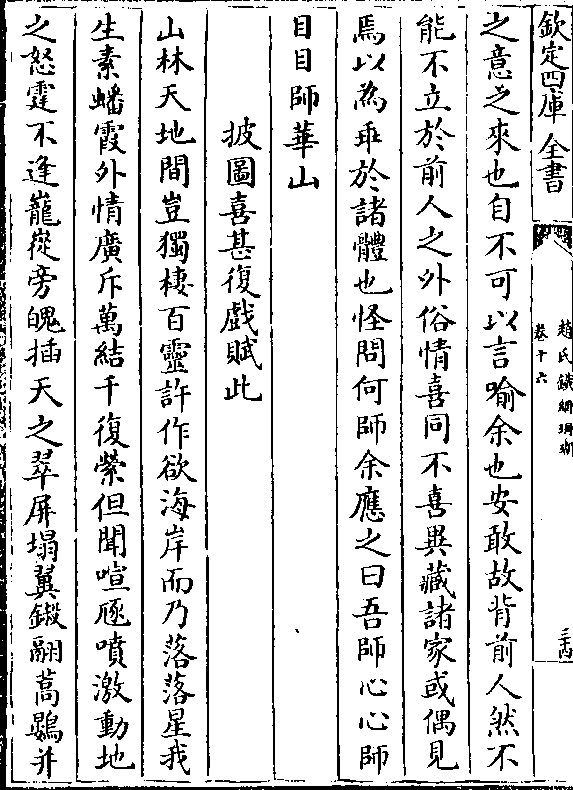 欽定四庫全書
趙氏鐵網珊瑚
卷十六
三十四
之意之來也自不可以言喻余也安敢故背前人然不
能不立於前人之外俗情喜同不喜異藏諸家或偶見
焉以為乖於諸體也怪問何師余應之曰吾師心心師
目目師華山
披圖喜甚復戲賦此
山林天地間豈獨棲百靈許作欲海岸而乃落落星我
生素蟠霞外情廣斥萬結千復縈但聞喧豗噴激動地
之怒霆不逢巃嵸旁魄插天之翠屏塌翼鎩翮蒿鷃并